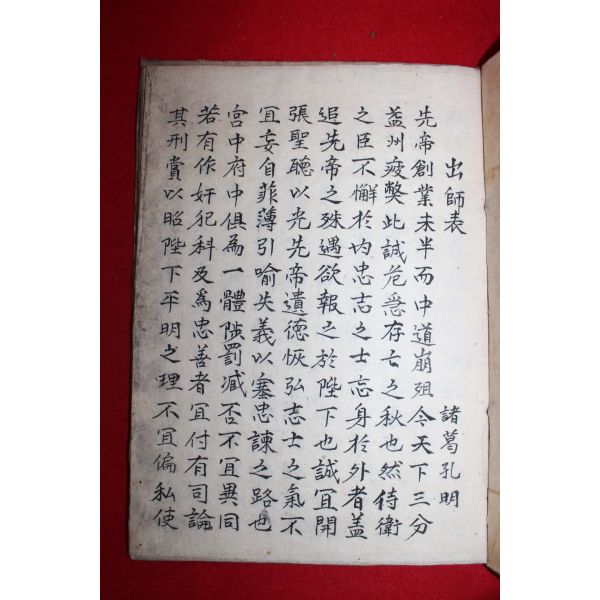 出師表 諸葛孔明
先帝創業未半而中道崩殂今天下三分
益州疲獘此誠危急存亡之秋也然侍衛
之臣不懈於内忠志之士忘身於外者盖
追先帝之殊遇欲報之於陛下也誠冝開
張聖聽以光先帝遺德恢弘志士之氣不
冝妄自菲薄引喻失義以塞忠諫之路也
宮中府中俱為一體陟罰減否不冝異同
若有作奸犯科及爲忠善者冝付有司論
其刑賞以昭陛下平明之理不冝偏私使